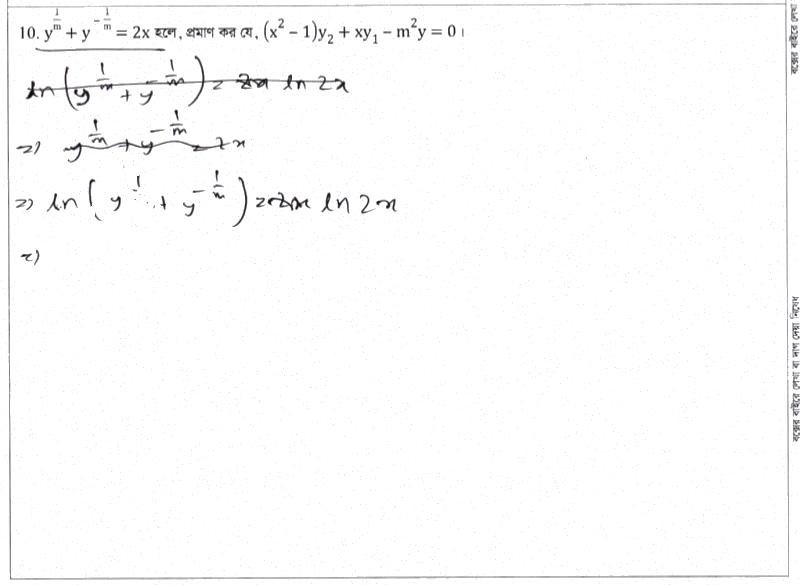 10. y^(1/m) + y^(-1/m) = 2x হলে, প্রমাণ কর যে, (x² − 1)y₂ + xy₁ − m²y = 0।
ln(y^(1/m) + y^(-1/m)) = ln 2x
=) y^(1/m) + y^(-1/m) = 2x
=) ln(y^1 + y^(-1/m)) = ln 2x
=)
বক্সের বাইরে লেখা
বক্সের বাইরে লেখা বা দাগ দেয়া নিষেধ